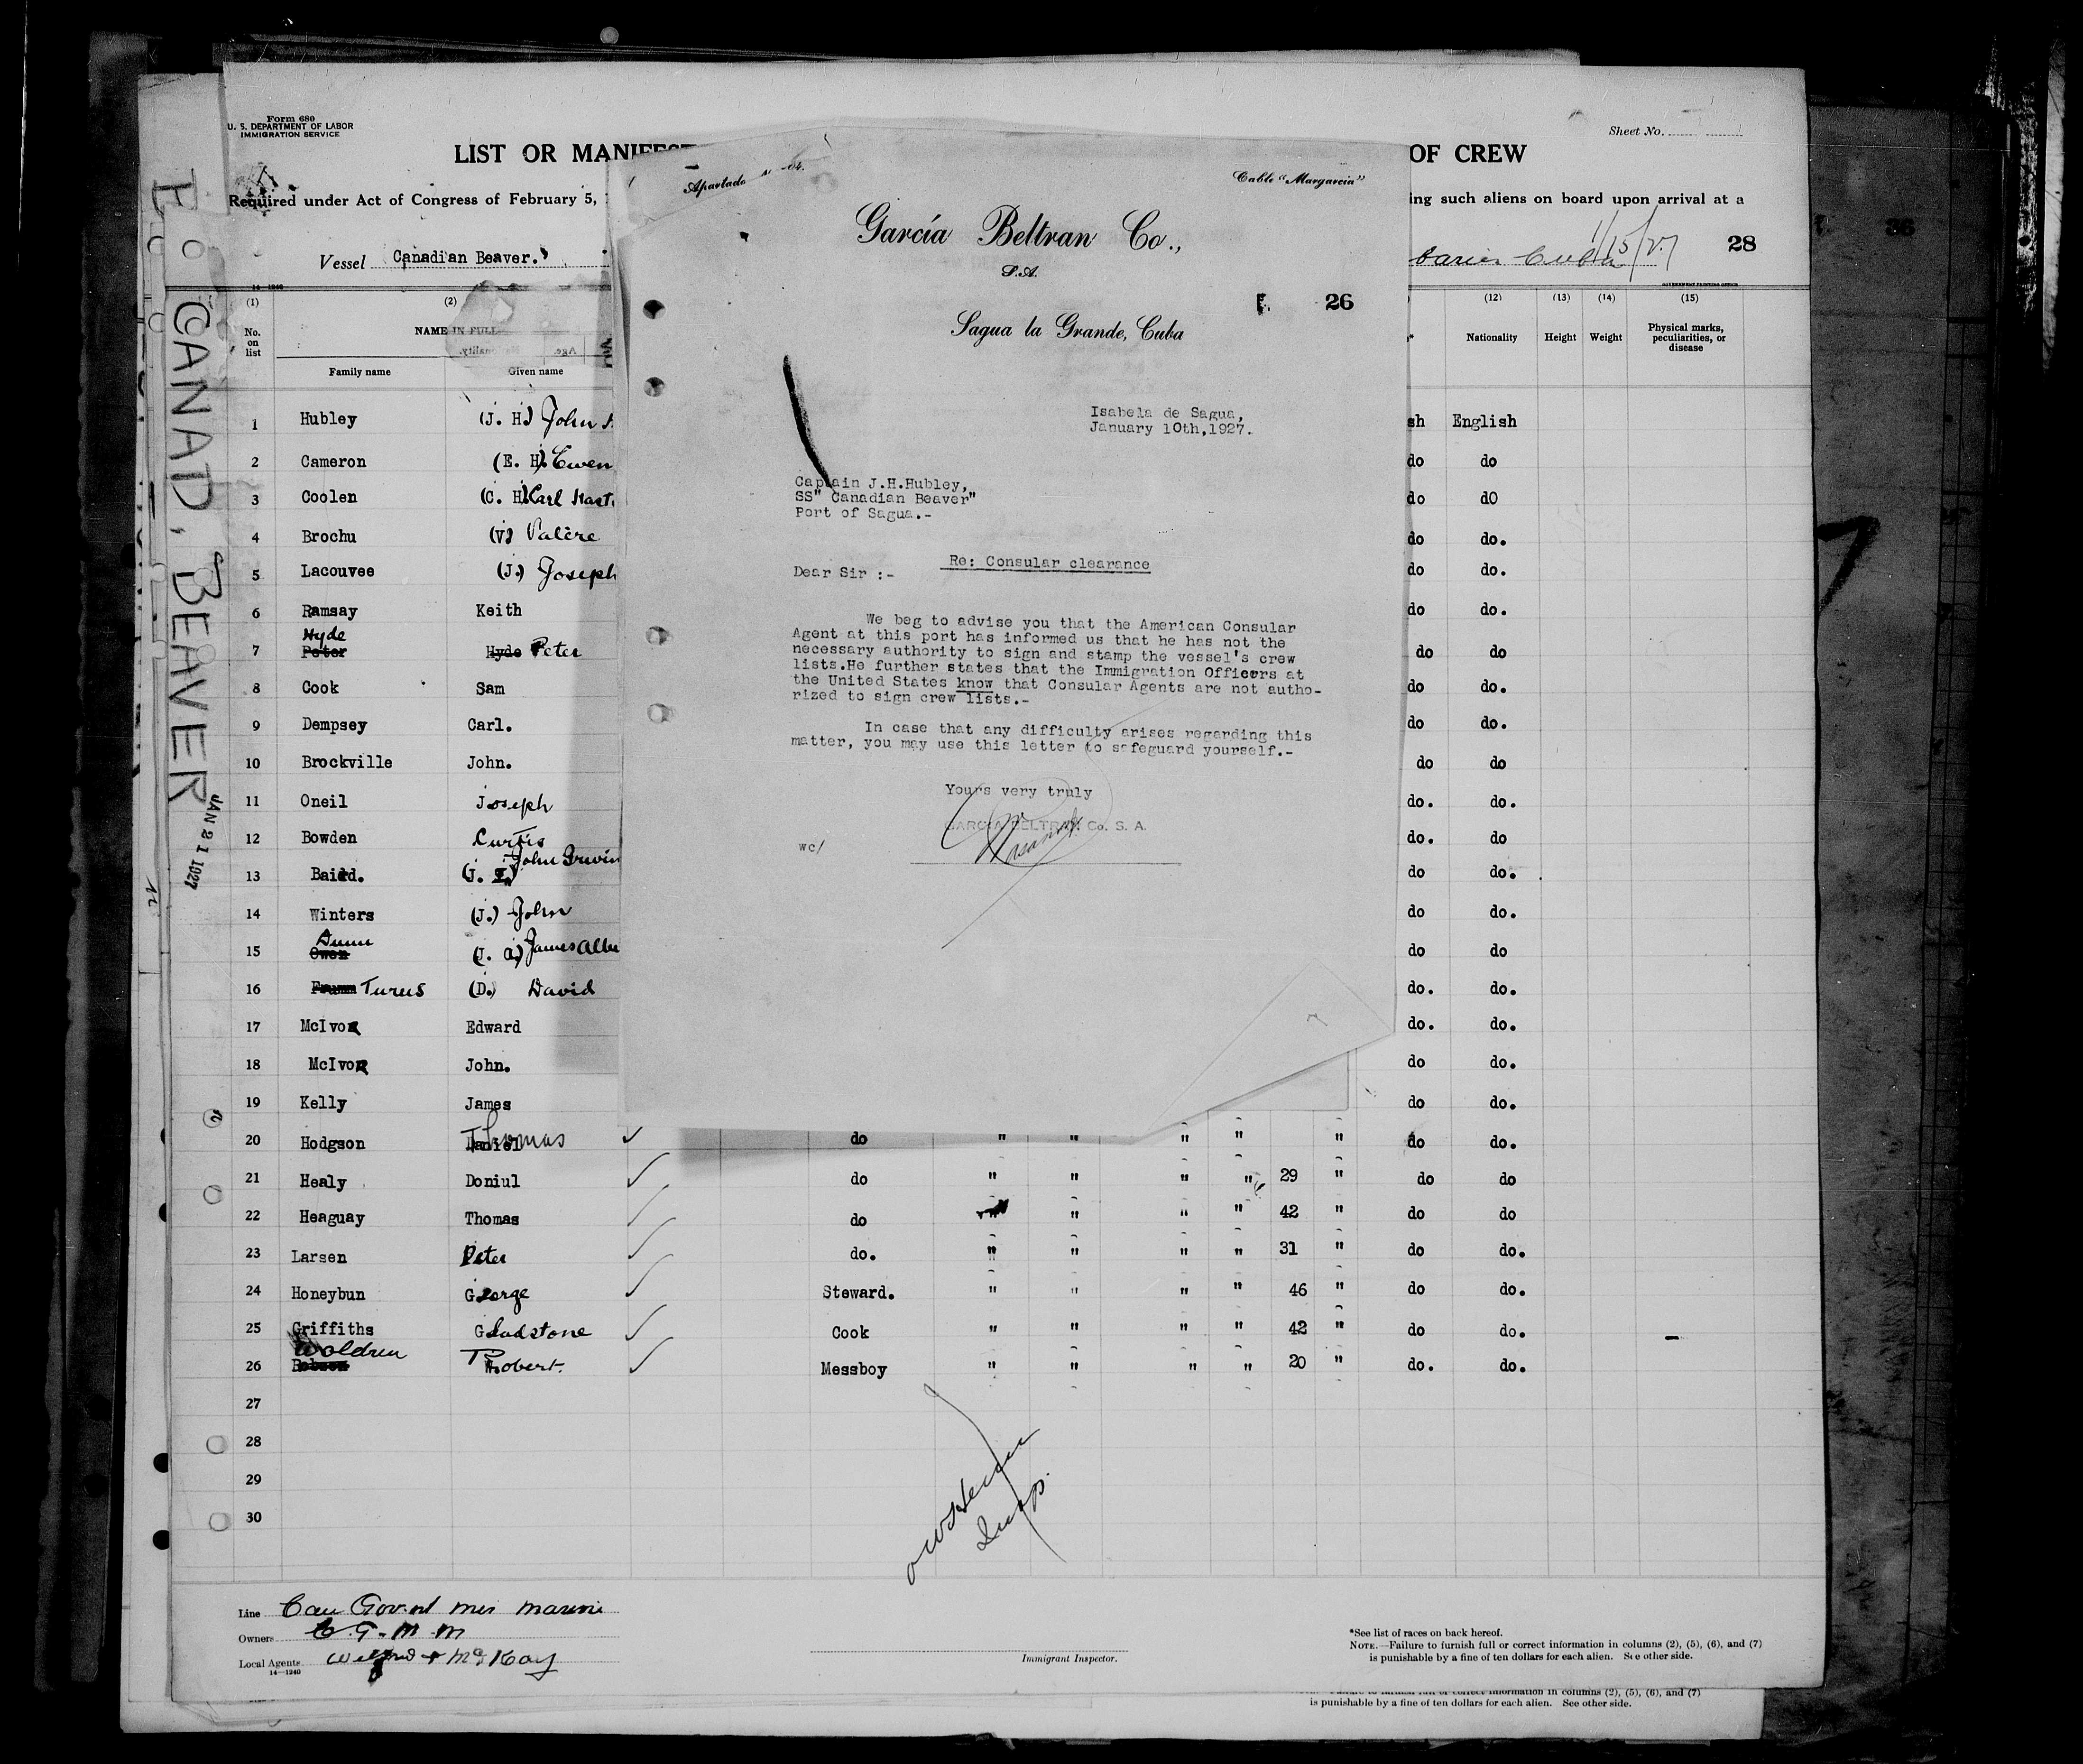 Form 680
U. S. DEPARTMENT OF LABOR
IMMIGRATION SERVICE
Sheet No.
LIST OR MANIFEST
OF CREW
Required under Act of Congress of February 5,
ing such aliens on board upon arrival at a
Vessel Canadian Beaver.
Cuba 1/15/27
28
14-1240
GOVERNMENT PRINTING OFFICE
(1) (2) (12) (13) (14) (15)
No. on list
NAME IN FULL
Family name Given name
Nationality Height Weight Physical marks, peculiarities, or disease
CANAD, BEAVER
JAN 21 1927
Apartado
Cable "Margarcia"
García Beltran Co.,
S.A.
26
Sagua la Grande, Cuba
Isabela de Sagua,
January 10th,1927.
Captain J.H.Hubley,
SS" Canadian Beaver"
Port of Sagua.-
Re: Consular clearance
Dear Sir :-
We beg to advise you that the American Consular
Agent at this port has informed us that he has not the
necessary authority to sign and stamp the vessel's crew
lists.He further states that the Immigration Officers at
the United States know that Consular Agents are not autho-
rized to sign crew lists.-
In case that any difficulty arises regarding this
matter, you may use this letter to safeguard yourself.-
Yours very truly
GARCIA BELTRAN Co. S. A.
wc/
1 Hubley (J. H) John sh English
2 Cameron (E. H). Ewen do do
3 Coolen (C. H) Karl do dO
4 Brochu (V) Valère do do.
5 Lacouvee (J.) Joseph do do.
6 Ramsay Keith do do.
7 Hyde Peter Hyde Peter do do
8 Cook Sam do do.
9 Dempsey Carl. do do.
10 Brockville John. do do
11 Oneil Joseph do. do.
12 Bowden Curtis do. do
13 Baird. (J. I.) John Irwin do do.
14 Winters (J.) John do do.
15 Dunn Owen (J. A) James do do
16 Turus (D.) David do. do.
17 McIvor Edward do. do.
18 McIvor John. do do.
19 Kelly James do do.
20 Hodgson Daniel Thomas do " " " " " do do.
21 Healy Doniul do " " " " 29 " do do
22 Heaguay Thomas do " " " " 42 " do do
23 Larsen Peter do. " " " " 31 " do do.
24 Honeybun George Steward. " " " " 46 " do do.
25 Griffiths Gladstone Cook " " " " 42 " do do.
26 Woldren Robert. Messboy " " " " 20 " do. do.
27
28
29
30
Line Can Gov.nt Mer Marine
Owners C. G. M. M
Local Agents & McKay
14-1240
Immigrant Inspector.
*See list of races on back hereof.
NOTE.—Failure to furnish full or correct information in columns (2), (5), (6), and (7)
is punishable by a fine of ten dollars for each alien. See other side.
is punishable by a fine of ten dollars for each alien. See other side.